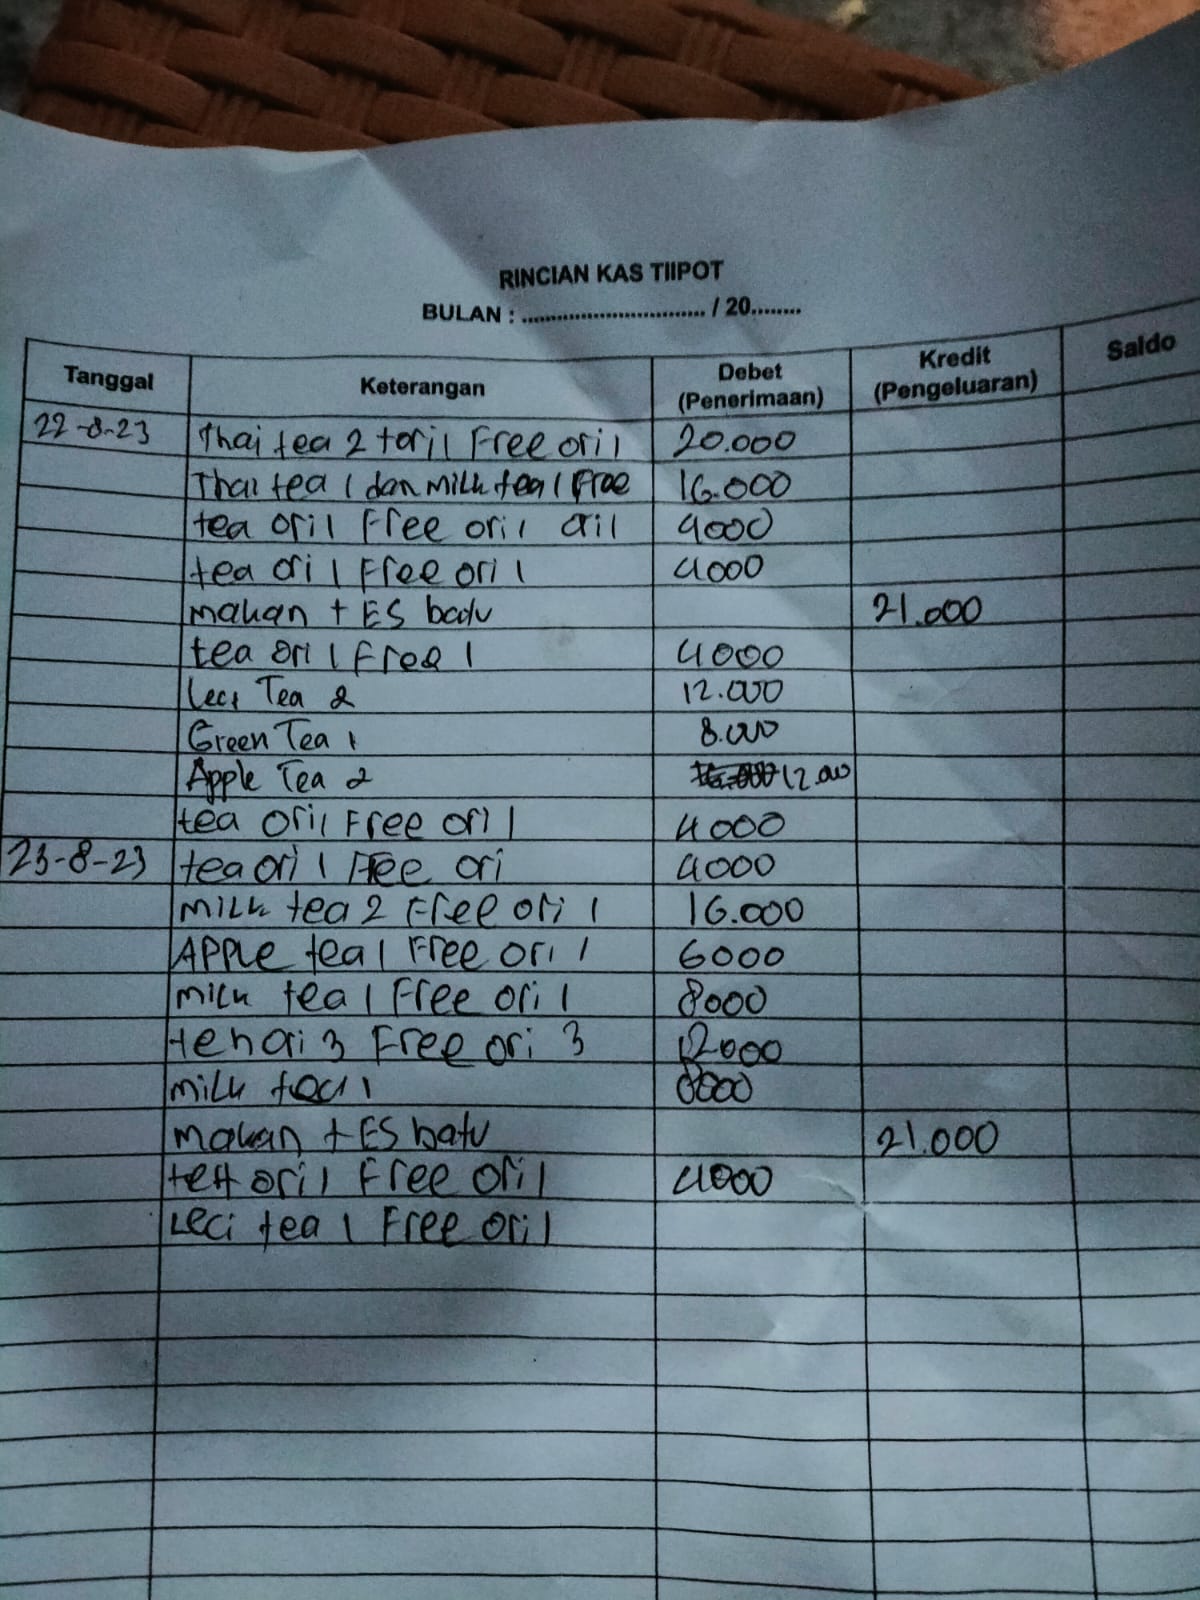 RINCIAN KAS TIIPOT
BULAN : .................................. / 20.........
Tanggal Keterangan Debet (Penerimaan) Kredit (Pengeluaran) Saldo
22-8-23 Thai tea 2 t ori 1 Free ori 1 20.000
Thai tea 1 dan Milk tea 1 Free 16.000
tea ori 1 Free ori 1 ori 1 4000
tea ori 1 Free ori 1 4000
makan + ES batu 21.000
tea ori 1 Free 1 4000
Leci Tea 2 12.000
Green Tea 1 8.000
Apple Tea 2 12.000
tea ori 1 Free ori 1 4000
23-8-23 tea ori 1 Free ori 4000
MILK tea 2 Free ori 1 16.000
APPLe tea 1 Free ori 1 6000
milk tea 1 Free ori 1 8000
ori 3 Free ori 3 12000
MILK tea 1 8000
makan + ES batu 21.000
ori 1 Free ori 1 4000
Leci tea 1 Free ori 1